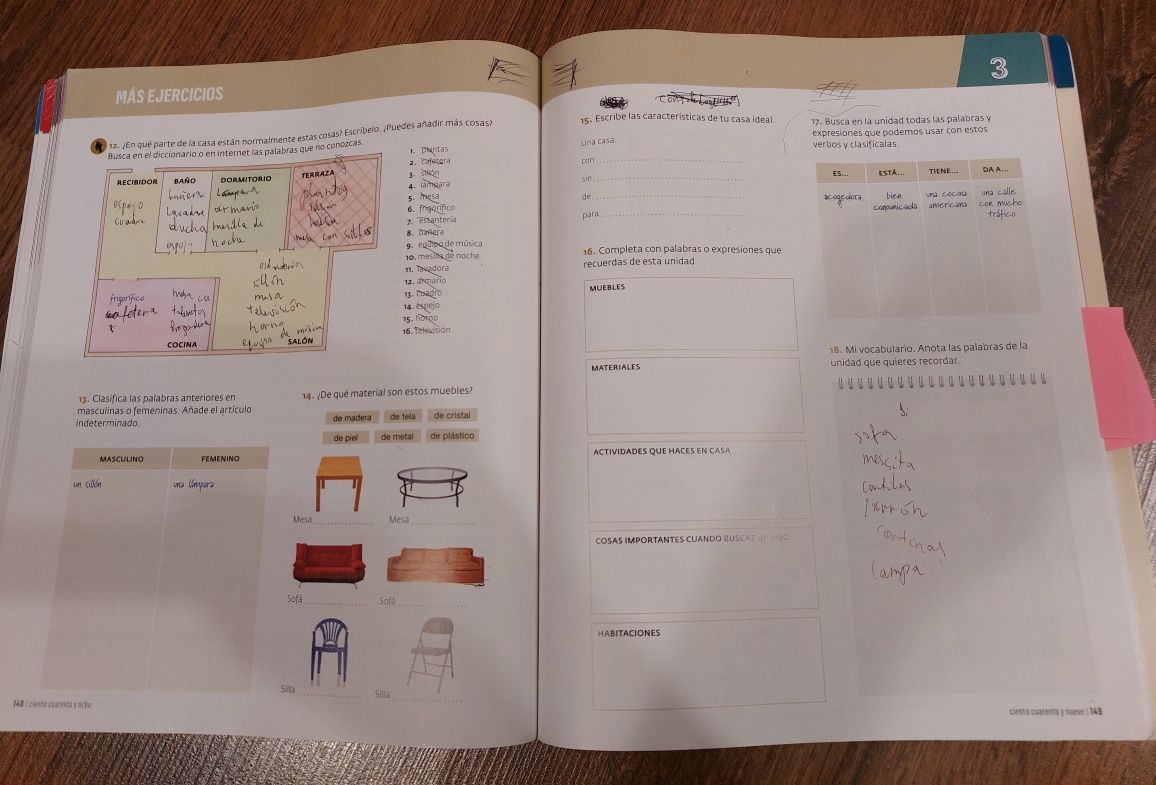 MÁS EJERCICIOS
12. ¿En qué parte de la casa están normalmente estas cosas? Escríbelo. ¿Puedes añadir más cosas?
Busca en el diccionario o en internet las palabras que no conozcas.
RECIBIDOR
espejo
cuadro
BAÑO
bañera
ducha
espejo
DORMITORIO
armario
mesilla de
noche
TERRAZA
sillón
mesa
mesa con sillas
frigorífico
cafetera
COCINA
sillón
mesa
televisión
horno
equipo de
SALÓN
1. plantas
2. cafetera
3. sillón
4. lámpara
5. mesa
6. frigorífico
7. estantería
8. bañera
9. equipo de música
10. mesilla de noche
11. lavadora
12. armario
13. cuadro
14. espejo
15. horno
16. televisión
13. Clasifica las palabras anteriores en
masculinas o femeninas. Añade el artículo
indeterminado.
MASCULINO FEMENINO
un sillón una lámpara
14. ¿De qué material son estos muebles?
de madera de tela de cristal
de piel de metal de plástico
Mesa Mesa
Sofá Sofá
Silla Silla
148 | ciento cuarenta y ocho
3
15. Escribe las características de tu casa ideal.
Una casa...
con
sin
de
para
16. Completa con palabras o expresiones que
recuerdas de esta unidad.
MUEBLES
MATERIALES
ACTIVIDADES QUE HACES EN CASA
COSAS IMPORTANTES CUANDO BUSCAS UN PISO
HABITACIONES
17. Busca en la unidad todas las palabras y
expresiones que podemos usar con estos
verbos y clasifícalas.
ES... ESTÁ... TIENE... DA A...
acogedora bien una cocina una calle
comunicada americana con mucho
tráfico
18. Mi vocabulario. Anota las palabras de la
unidad que quieres recordar.
sofa
mescita
lampa
ciento cuarenta y nueve | 149